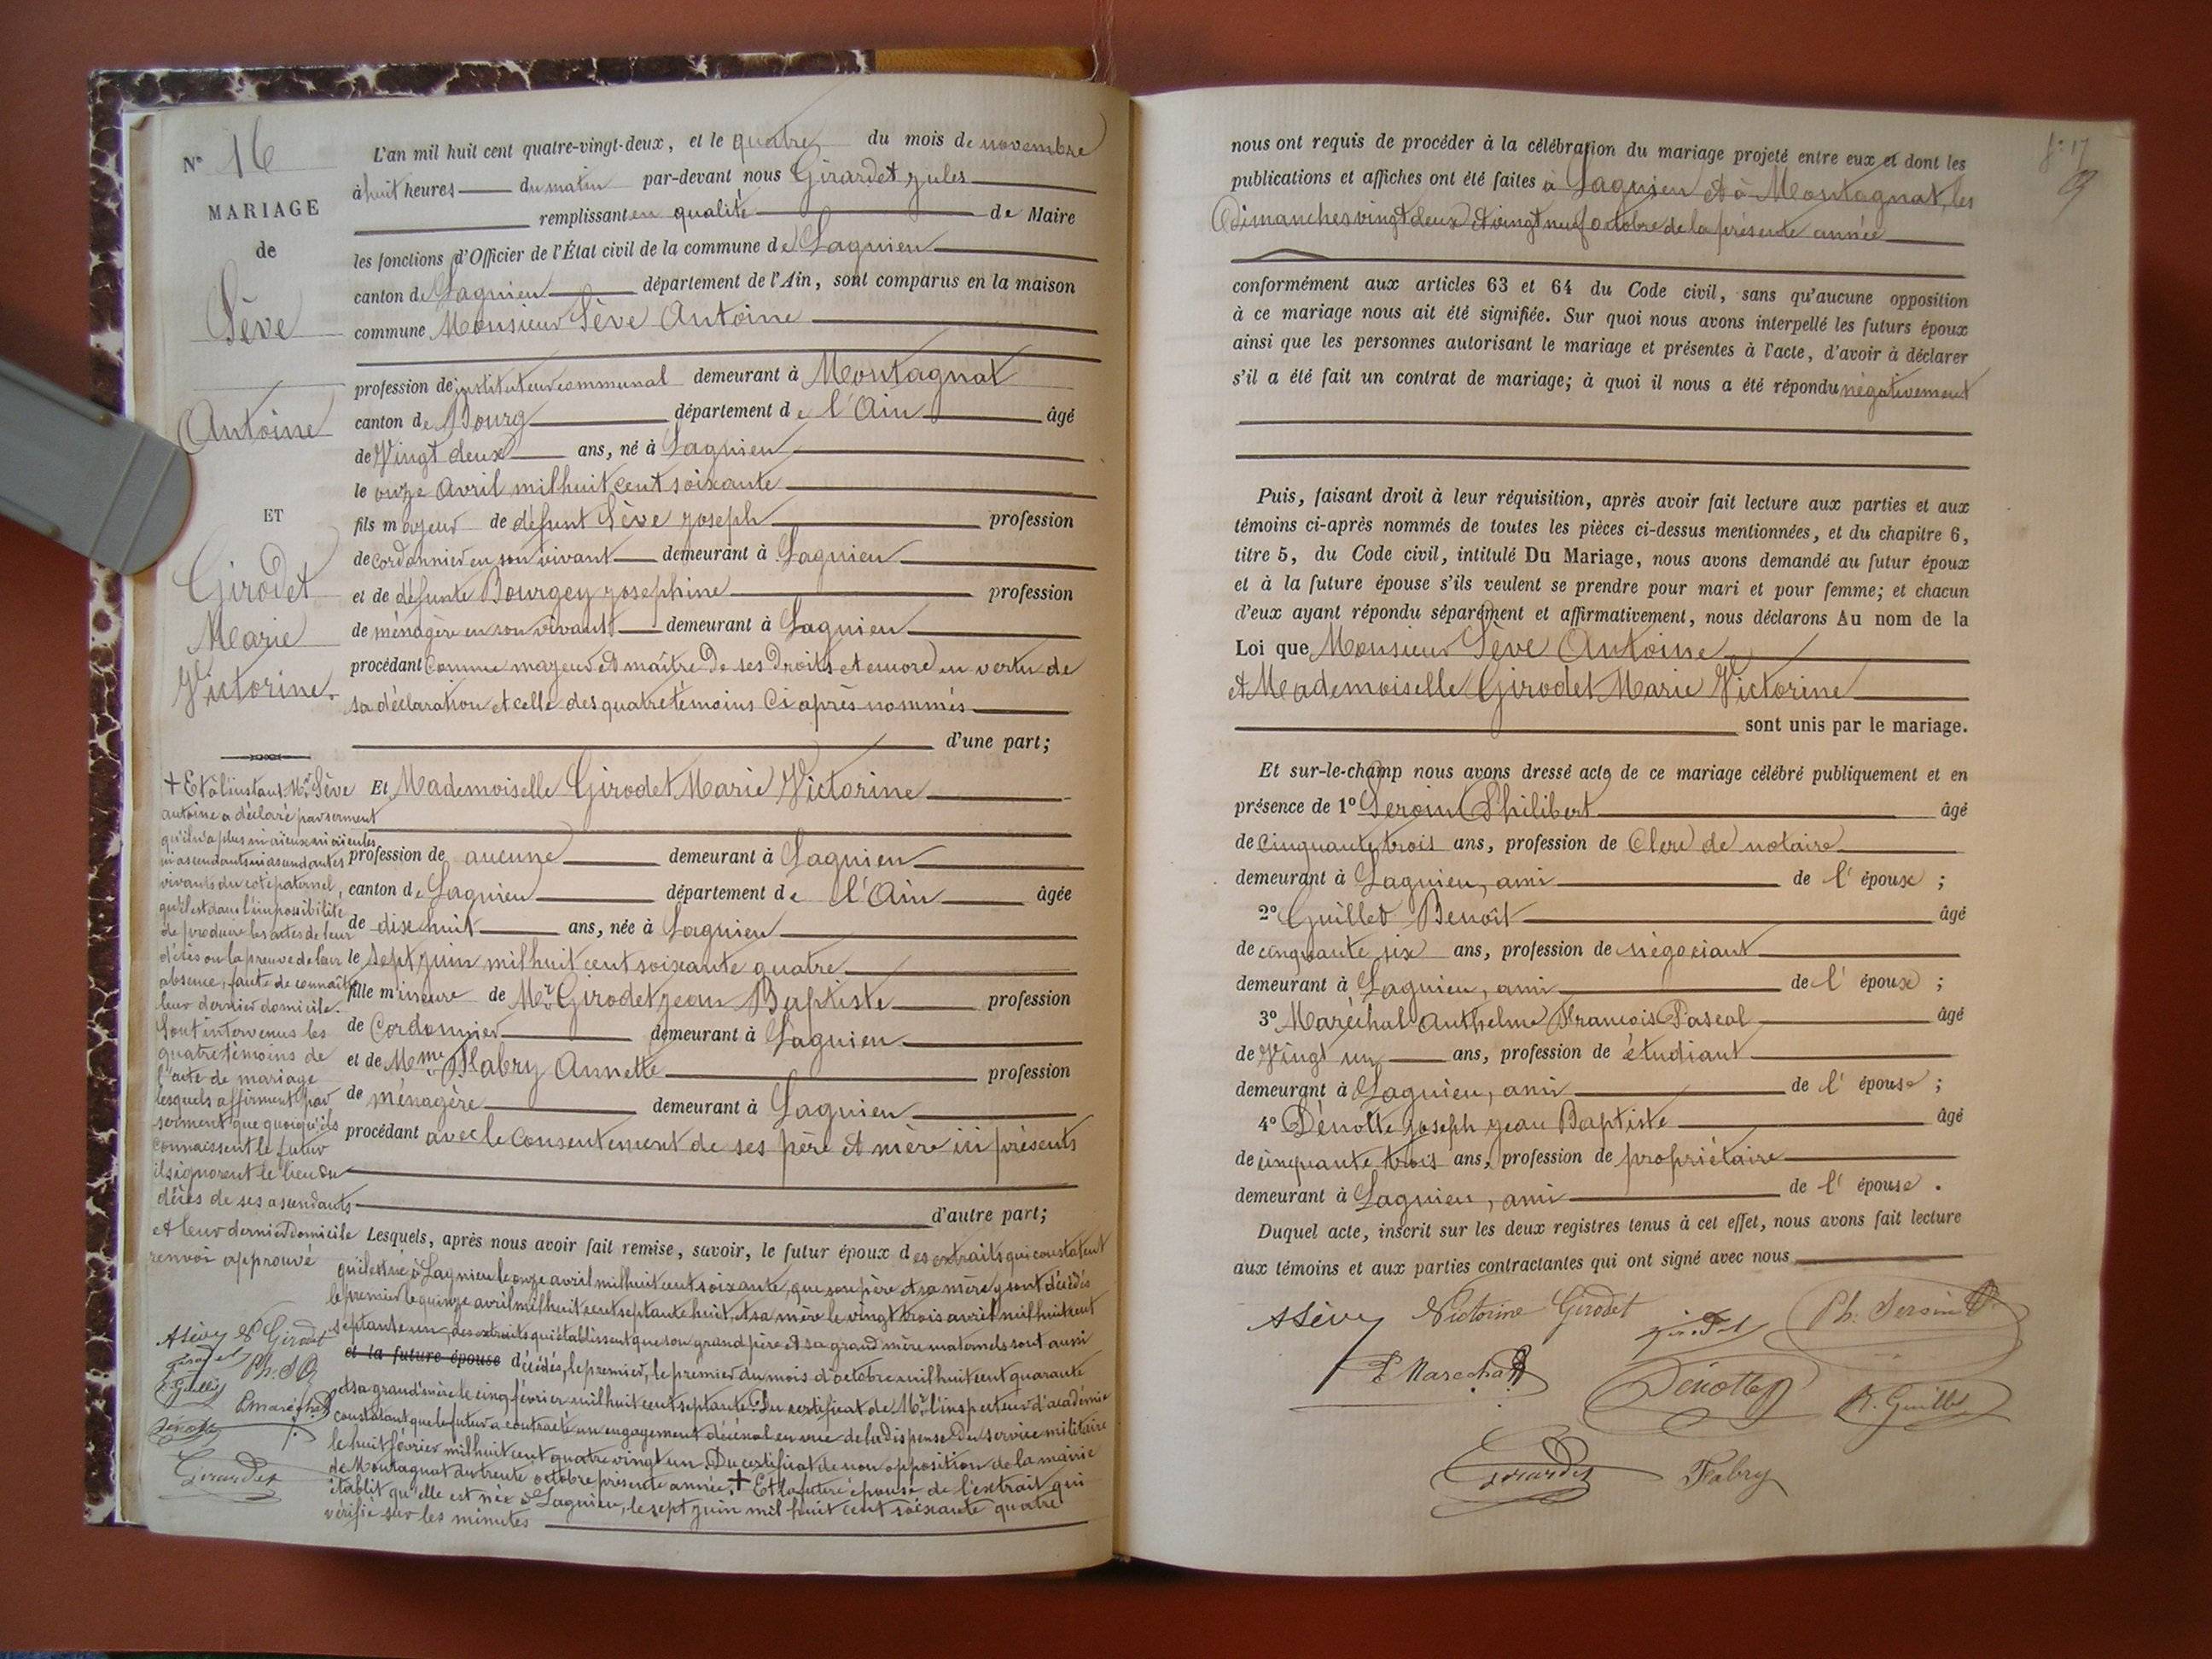 N° 16
MARIAGE
de
Sève
Antoine
ET
Girodet
Marie
Victorine.
L'an mil huit cent quatre-vingt-deux, et le quatre du mois de novembre
à huit heures du matin par-devant nous Girardet Jules
remplissant en qualité de Maire
les fonctions d'Officier de l'État civil de la commune de Lagnieu
canton de Lagnieu département de l'Ain, sont comparus en la maison
commune Monsieur Sève Antoine
profession de instituteur communal demeurant à Montagnat
canton de Bourg département de l'Ain âgé
de Vingt deux ans, né à Lagnieu
le onze Avril mil huit cent soixante
fils majeur de défunt Sève Joseph profession
de cordonnier en son vivant demeurant à Lagnieu
et de défunte Bourgey Josephine profession
de ménagère en son vivant demeurant à Lagnieu
procédant comme majeur et maître de ses droits et encore en vertu de
sa déclaration et celle des quatre témoins ci après nommés
d'une part;
Et Mademoiselle Girodet Marie Victorine
profession de aucune demeurant à Lagnieu
canton de Lagnieu département de l'Ain âgée
de dix huit ans, née à Lagnieu
le sept juin mil huit cent soixante quatre
fille mineure de Mr Girodet Jean Baptiste profession
de Cordonnier demeurant à Lagnieu
et de Mme Fabry Annette profession
de ménagère demeurant à Lagnieu
procédant avec le consentement de ses père et mère ici présents
d'autre part;
Lesquels, après nous avoir fait remise, savoir, le futur époux des extraits qui constatent
qu'il est né à Lagnieu le onze avril mil huit cent soixante, que son père et sa mère y sont décédés
le premier le quinze avril mil huit cent septante huit, et sa mère le vingt trois avril mil huit cent
septante un, des extraits qui établissent que son grand père et sa grand mère maternels sont aussi
et la future épouse décédés, le premier, le premier du mois d'octobre mil huit cent quarante
et sa grand'mère le cinq février mil huit cent septante. Du certificat de Mr l'inspecteur d'académie
constatant que le futur a contracté un engagement décénal en vue de la dispense du service militaire
le huit février mil huit cent quatre vingt un. Du certificat de non opposition de la mairie
de Montagnat du trente octobre présente année. + Et la future épouse de l'extrait qui
établit qu'elle est née à Lagnieu, le sept juin mil huit cent soixante quatre
vérifié sur les minutes
+ Et à l'instant Mr Sève
antoine a déclaré par serment
qu'il n'a plus ni aïeux ni aïeules
ni ascendants ni ascendantes
vivants du coté paternel,
qu'il est dans l'impossibilité
de produire les actes de leur
décès ou la preuve de leur
absence, faute de connaître
leur dernier domicile.
Sont intervenus les
quatre témoins de
l'acte de mariage
lesquels affirment par
serment que quoiqu'ils
connaissent le futur
ils ignorent le lieu du
décès de ses ascendants
et leur dernier domicile
renvoi approuvé
A Sève V Girodet
Girodet Ph. S
B. Guillet
P. Maréchal
Dénotte
Girardet
f: 17
nous ont requis de procéder à la célébration du mariage projeté entre eux et dont les
publications et affiches ont été faites à Lagnieu et à Montagnat, les
Dimanches vingt deux et vingt neuf octobre de la présente année
conformément aux articles 63 et 64 du Code civil, sans qu'aucune opposition
à ce mariage nous ait été signifiée. Sur quoi nous avons interpellé les futurs époux
ainsi que les personnes autorisant le mariage et présentes à l'acte, d'avoir à déclarer
s'il a été fait un contrat de mariage; à quoi il nous a été répondu négativement
Puis, faisant droit à leur réquisition, après avoir fait lecture aux parties et aux
témoins ci-après nommés de toutes les pièces ci-dessus mentionnées, et du chapitre 6,
titre 5, du Code civil, intitulé Du Mariage, nous avons demandé au futur époux
et à la future épouse s'ils veulent se prendre pour mari et pour femme; et chacun
d'eux ayant répondu séparément et affirmativement, nous déclarons Au nom de la
Loi que Monsieur Sève Antoine
et Mademoiselle Girodet Marie Victorine
sont unis par le mariage.
Et sur-le-champ nous avons dressé acte de ce mariage célébré publiquement et en
présence de 1° Seroin Philibert âgé
de cinquante trois ans, profession de Clerc de notaire
demeurant à Lagnieu, ami de l'époux;
2° Guillet Benoît âgé
de cinquante six ans, profession de négociant
demeurant à Lagnieu, ami de l'époux;
3° Maréchal Anthelme François Pascal âgé
de Vingt un ans, profession de étudiant
demeurant à Lagnieu, ami de l'épouse;
4° Dénotte Joseph Jean Baptiste âgé
de cinquante trois ans, profession de propriétaire
demeurant à Lagnieu, ami de l'épouse.
Duquel acte, inscrit sur les deux registres tenus à cet effet, nous avons fait lecture
aux témoins et aux parties contractantes qui ont signé avec nous
A Sève Victorine Girodet Girodet Ph. Seroin
P Maréchal Dénotte B. Guillet
Girardet Fabry